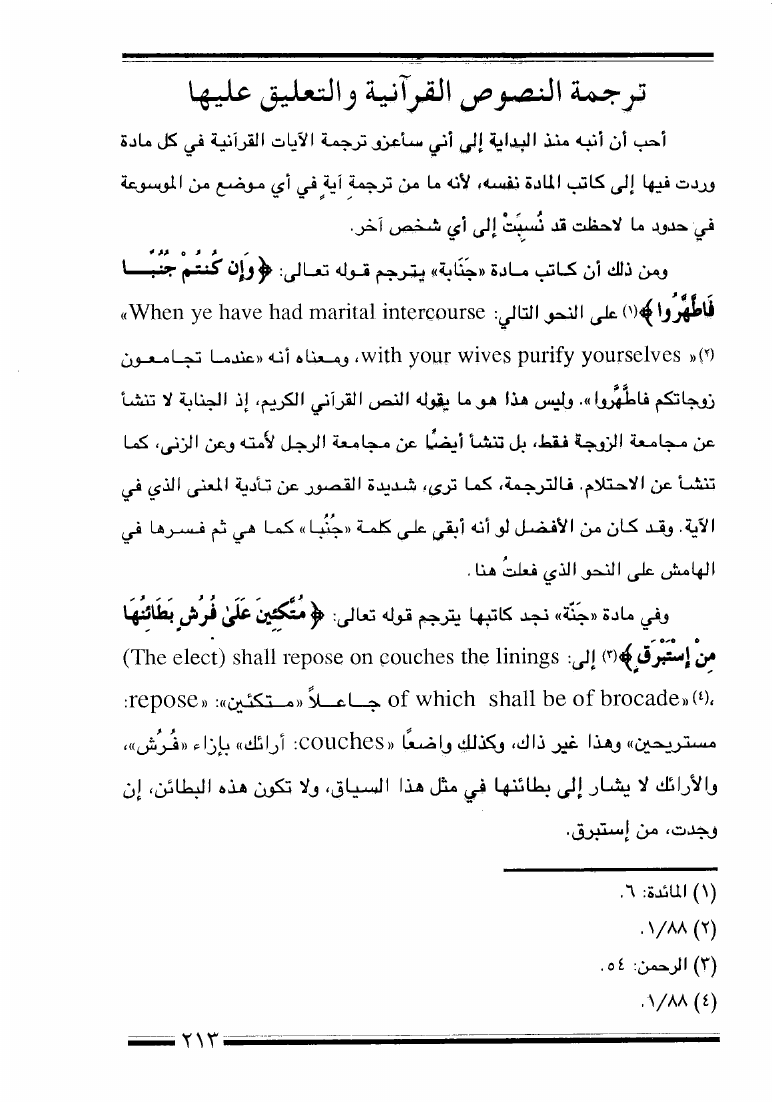 ترجمة النصوص القرآنية والتعليق عليها
أحب أن أنبه منذ البداية إلى أني سأعزو ترجمة الآيات القرآنية في كل مادة
وردت فيها إلى كاتب المادة نفسه، لأنه ما من ترجمة آيةٍ في أي موضع من الموسوعة
في حدود ما لاحظت قد نُسِبَتْ إلى أي شخص آخر.
ومن ذلك أن كاتب مادة «جَنَابة» يترجم قوله تعالى: ﴿وَإِن كُنتُمْ جُنُبًا
فَاطَّهَّرُوا﴾(١) على النحو التالي: «When ye have had marital intercourse
with your wives purify yourselves»(٢)، ومعناه أنه «عندما تجامعون
زوجاتكم فاطَّهَّروا». وليس هذا هو ما يقوله النص القرآني الكريم، إذ الجنابة لا تنشأ
عن مجامعة الزوجة فقط، بل تنشأ أيضًا عن مجامعة الرجل لأمته وعن الزنى، كما
تنشأ عن الاحتلام. فالترجمة، كما ترى، شديدة القصور عن تأدية المعنى الذي في
الآية. وقد كان من الأفضل لو أنه أبقى على كلمة «جُنُبا» كما هي ثم فسرها في
الهامش على النحو الذي فعلتُ هنا.
وفي مادة «جَنّة» نجد كاتبها يترجم قوله تعالى: ﴿مُتَّكِئِينَ عَلَىٰ فُرُشٍ بَطَائِنُهَا
مِنْ إِسْتَبْرَقٍ﴾(٣) إلى: (The elect) shall repose on couches the linings
of which shall be of brocade»(٤)، جاعلاً «متكئين»: «repose:
مستريحين» وهذا غير ذاك، وكذلك واضعًا «couches: أرائك» بإزاء «فُرُش»،
والأرائك لا يشار إلى بطائنها في مثل هذا السياق، ولا تكون هذه البطائن، إن
وجدت، من إستبرق.
(١) المائدة: ٦.
(٢) ١/٨٨.
(٣) الرحمن: ٥٤.
(٤) ١/٨٨.
٢١٣